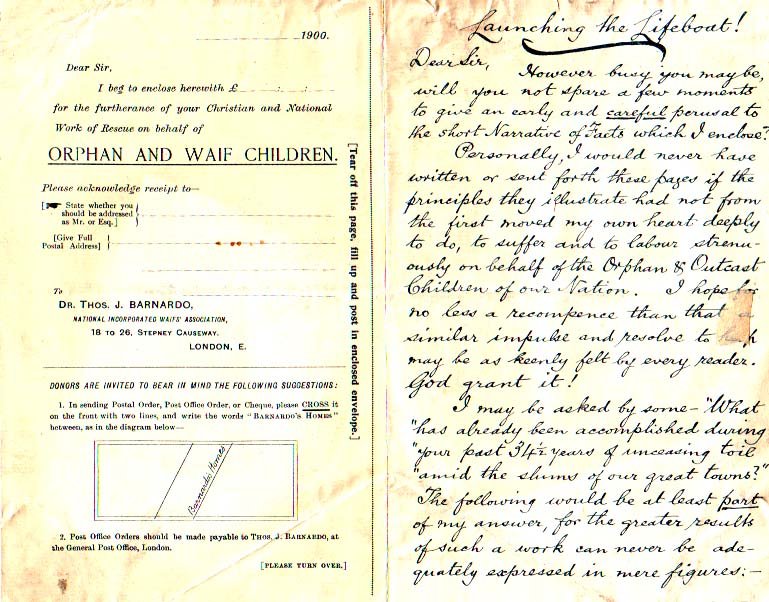 1900.
Dear Sir,
I beg to enclose herewith £ : :
for the furtherance of your Christian and National
Work of Rescue on behalf of
ORPHAN AND WAIF CHILDREN.
Please acknowledge receipt to—
[State whether you
should be addressed
as Mr. or Esq.]
[Give Full
Postal Address]
To
DR. THOS. J. BARNARDO,
NATIONAL INCORPORATED WAIFS' ASSOCIATION,
18 TO 26, STEPNEY CAUSEWAY,
LONDON, E.
DONORS ARE INVITED TO BEAR IN MIND THE FOLLOWING SUGGESTIONS:
1. In sending Postal Order, Post Office Order, or Cheque, please CROSS it
on the front with two lines, and write the words "BARNARDO'S HOMES"
between, as in the diagram below—
Barnardos Homes
2. Post Office Orders should be made payable to THOS. J. BARNARDO, at
the General Post Office, London.
[PLEASE TURN OVER.]
[Tear off this page, fill up and post in enclosed envelope.]
Launching the Lifeboat!
Dear Sir,
However busy you may be,
will you not spare a few moments
to give an early and careful perusal to
the short Narrative of Facts which I enclose?
Personally, I would never have
written or sent forth these pages if the
principles they illustrate had not from
the first moved my own heart deeply
to do, to suffer and to labour strenu-
ously on behalf of the Orphan & Outcast
Children of our Nation. I hope for
no less a recompence than that a
similar impulse and resolve to
may be as keenly felt by every reader.
God grant it!
I may be asked by some – "What
"has already been accomplished during
"your past 34½ years of unceasing toil
"amid the slums of our great towns?"
The following would be at least part
of my answer, for the greater results
of such a work can never be ade-
quately expressed in mere figures:–